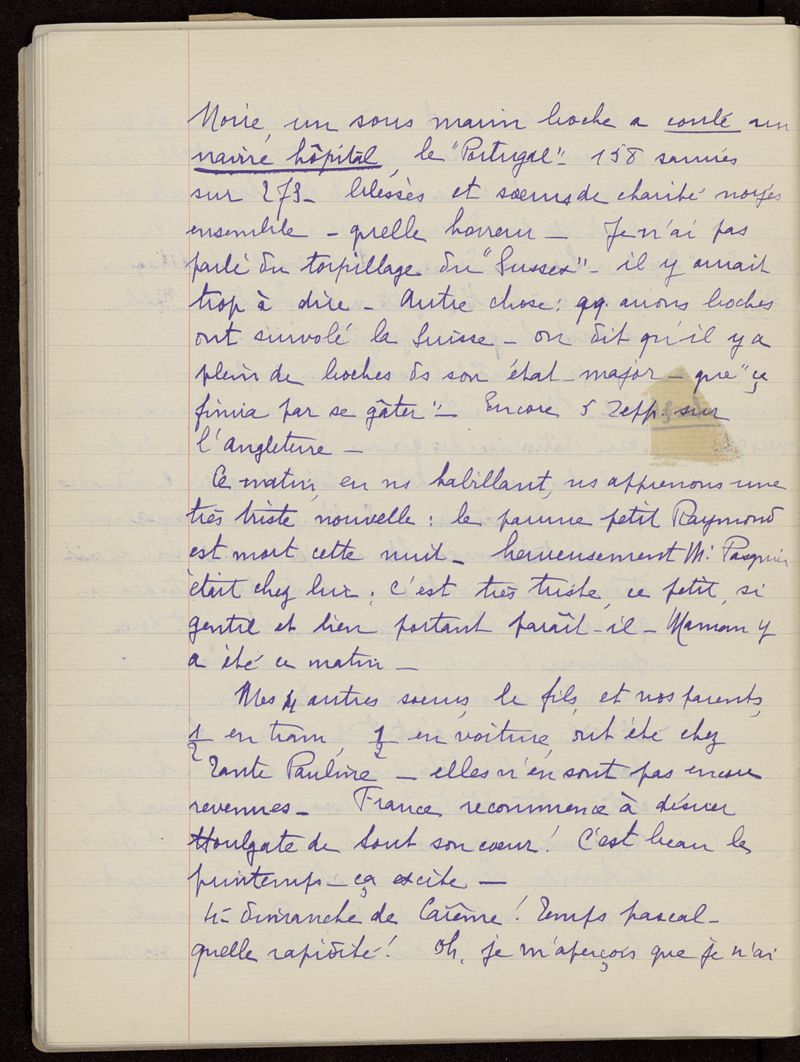 Noire, un sous marin boche a coulé un
navire hôpital, le "Portugal" - 158 sauvés
sur 273 - blessés et sœurs de charité noyés
ensemble - quelle horreur - Je n'ai pas
parlé du torpillage du "Sussex" - il y aurait
trop à dire - Autre chose : qq. avions boches
ont survolé la Suisse - on dit qu'il y a
plein de boches ds son état-major - que "ça
finira par se gâter" - Encore 5 zepp. sur
l'Angleterre -
Ce matin, en ns habillant, ns apprenons une
très triste nouvelle : le pauvre petit Raymond
est mort cette nuit - heureusement Mr Pasquier
était chez lui ; c'est très triste, ce petit, si
gentil et bien portant paraît-il - Maman y
a été ce matin -
Mes 4 autres sœurs, le fils, et nos parents,
1/2 en tram, 1/2 en voiture, ont été chez
Tante Pauline - elles n'en sont pas encore
revenues - France recommence à désirer
Houlgate de tout son cœur ! C'est beau le
printemps - ça excite -
4e dimanche de Carême ! Temps pascal -
quelle rapidité ! Oh, je m'aperçois que je n'ai